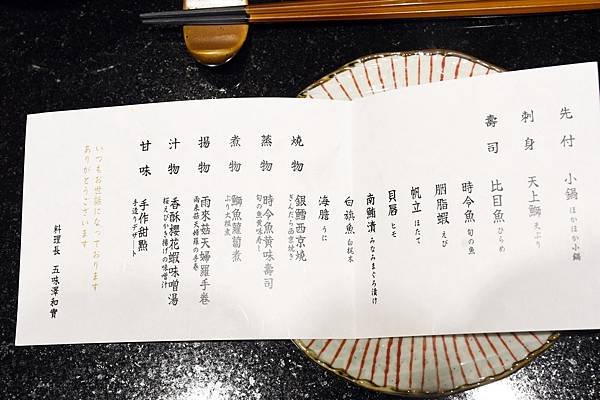 先付 小鍋 ほかほか小鍋
刺身 天上鰤 天ぶり
壽司 比目魚 ひらめ
時令魚 旬の魚
胭脂蝦 えび
帆立 ほたて
貝唇 ヒモ
南鮪漬 みなみまぐろ漬け
白旗魚 白梶木
海膽 うに
燒物 銀鱈西京燒 ぎんだら西京焼き
蒸物 時令魚黃味壽司 旬の魚黄味寿し
煮物 鰤魚蘿蔔煮 ぶり大根煮
揚物 雨來菇天婦羅手卷 雨来菇天婦羅の手巻
汁物 香酥櫻花蝦味噌湯 桜えびかき揚げの味噌汁
甘味 手作甜點 手造りデザート
いつもお世話になっております
ありがとうございます
料理長 五味澤和實